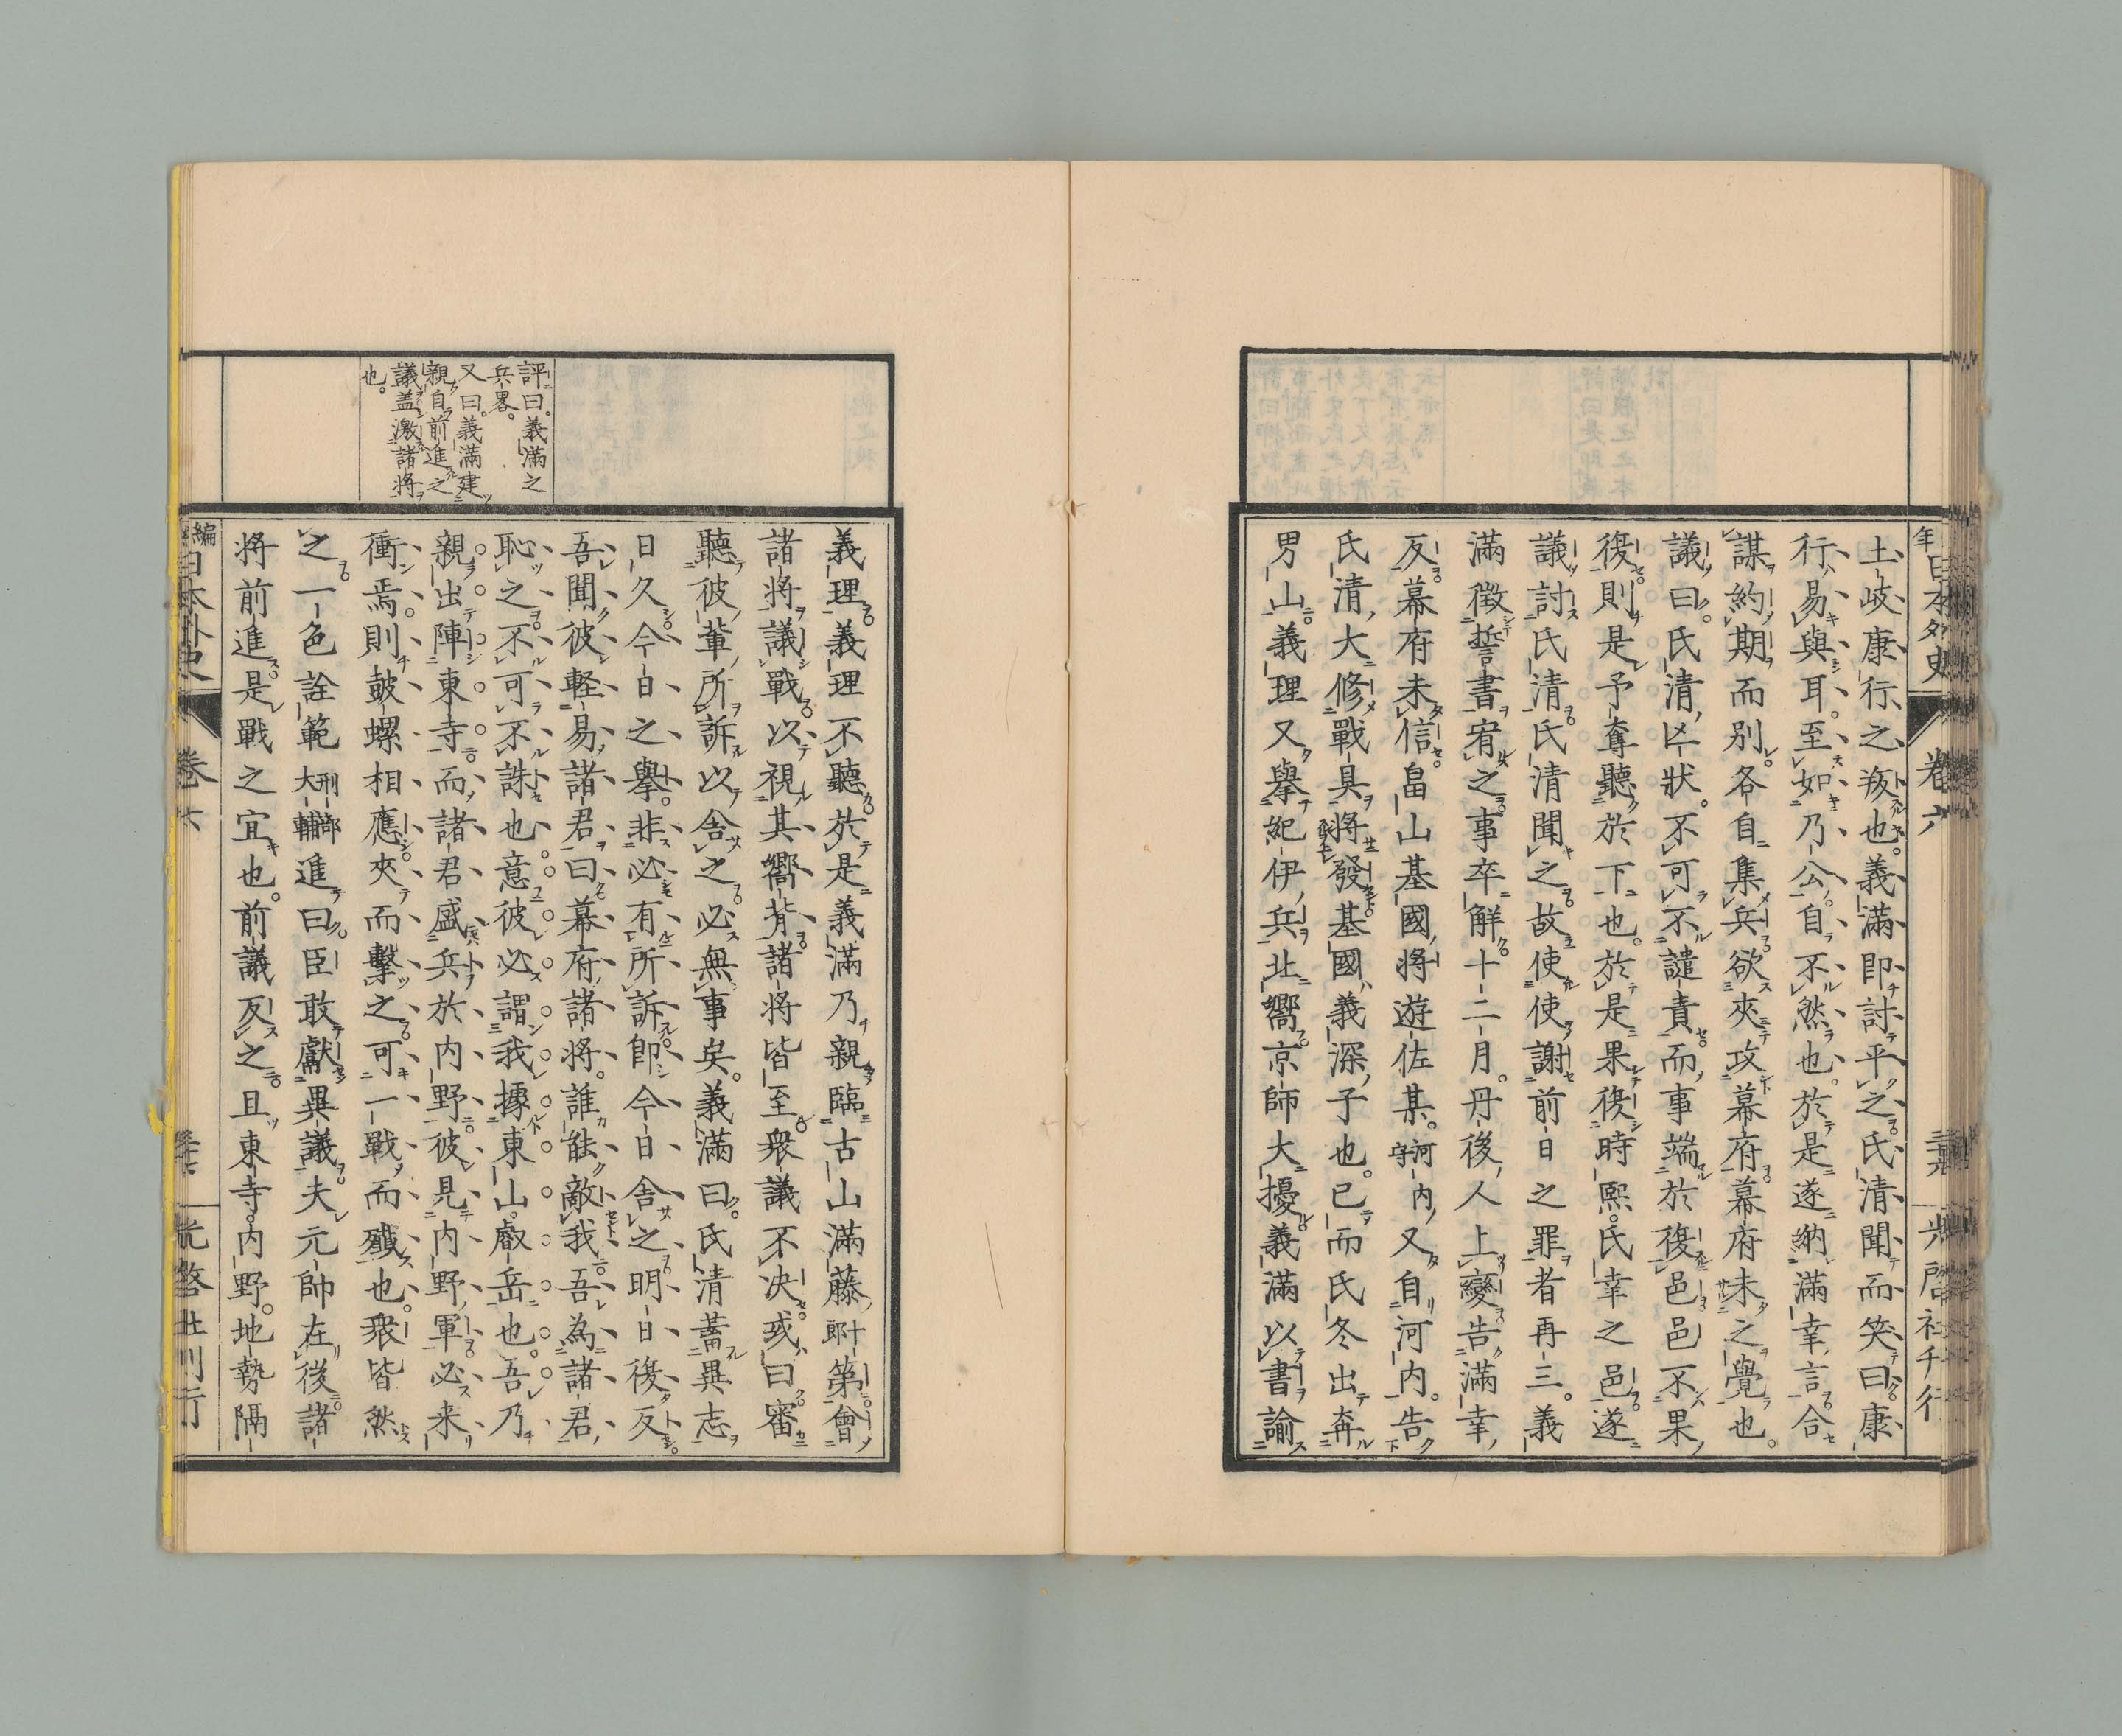 土岐康行之叛也。義滿即討平之。氏清聞而笑曰。康
行易與耳。至如乃公。自不然也。於是遂納滿幸言。合
謀約期而別。各自集兵欲夾攻幕府。幕府未之覺也。
議曰。氏清凶狀。不可不譴責。而事端於復邑。邑不果
復。則是予奪聽於下也。於是果復時熙氏幸之邑。遂
議討氏清。氏清聞之。故使使謝前日之罪者再三。義
滿徴誓書宥之。事卒解。十二月。丹後人上變告滿幸
反。幕府未信。畠山基國將遊佐某。河内守又自河内。告
氏清大修戰具將發。基國義深子也。已而氏冬出奔
男山。義理又擧紀伊兵北嚮。京師大擾。義滿以書諭
年日本外史
卷六
光啓社刊行
評曰。義滿之
兵畧。
又曰。義滿建
親自前進之
議盖激諸將
也。
義理。義理不聽。於是義滿乃親臨古山滿藤十郎第。會
諸將議戰。以視其嚮背。諸將皆至。衆議不决。或曰。審
聽彼輩所訴。以舍之。必無事矣。義滿曰。氏清蓄異志
日久。今日之擧。非必有所訴。即今日舍之。明日復反。
吾聞彼輕易諸君曰。幕府諸將。誰能敵我。吾為諸君
恥之。不可不誅也。意彼必謂我據東山叡岳也。吾乃
親出陣東寺。而諸君盛兵於内野。彼見内野軍。必来
衝焉。則鼓螺相應。夾而擊之。可一戰而殱也。衆皆然
之。一色詮範刑部大輔進曰。臣敢獻異議。夫元帥在後。諸
將前進。是戰之宜也。前議反之。且東寺内野。地勢隔
編日本外史
卷六
光啓社刊行